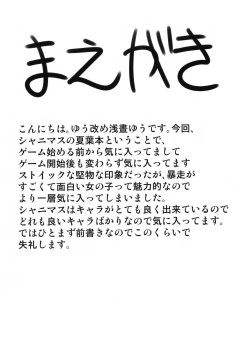 まえがき
こんにちは。ゆう改め浅蜇ゆうです。今回、
シャニマスの夏葉本ということで、
ゲーム始める前から気に入ってまして
ゲーム開始後も変わらず気に入ってます
ストイックな堅物な印象だったが、暴走が
すごくて面白い女の子って魅力的なので
より一層気に入ってしまいました。
シャニマスはキャラがとても良く出来ているので
どれも良いキャラばかりなので気に入ってます。
ではひとまず前書きなのでこのくらいで
失礼します。